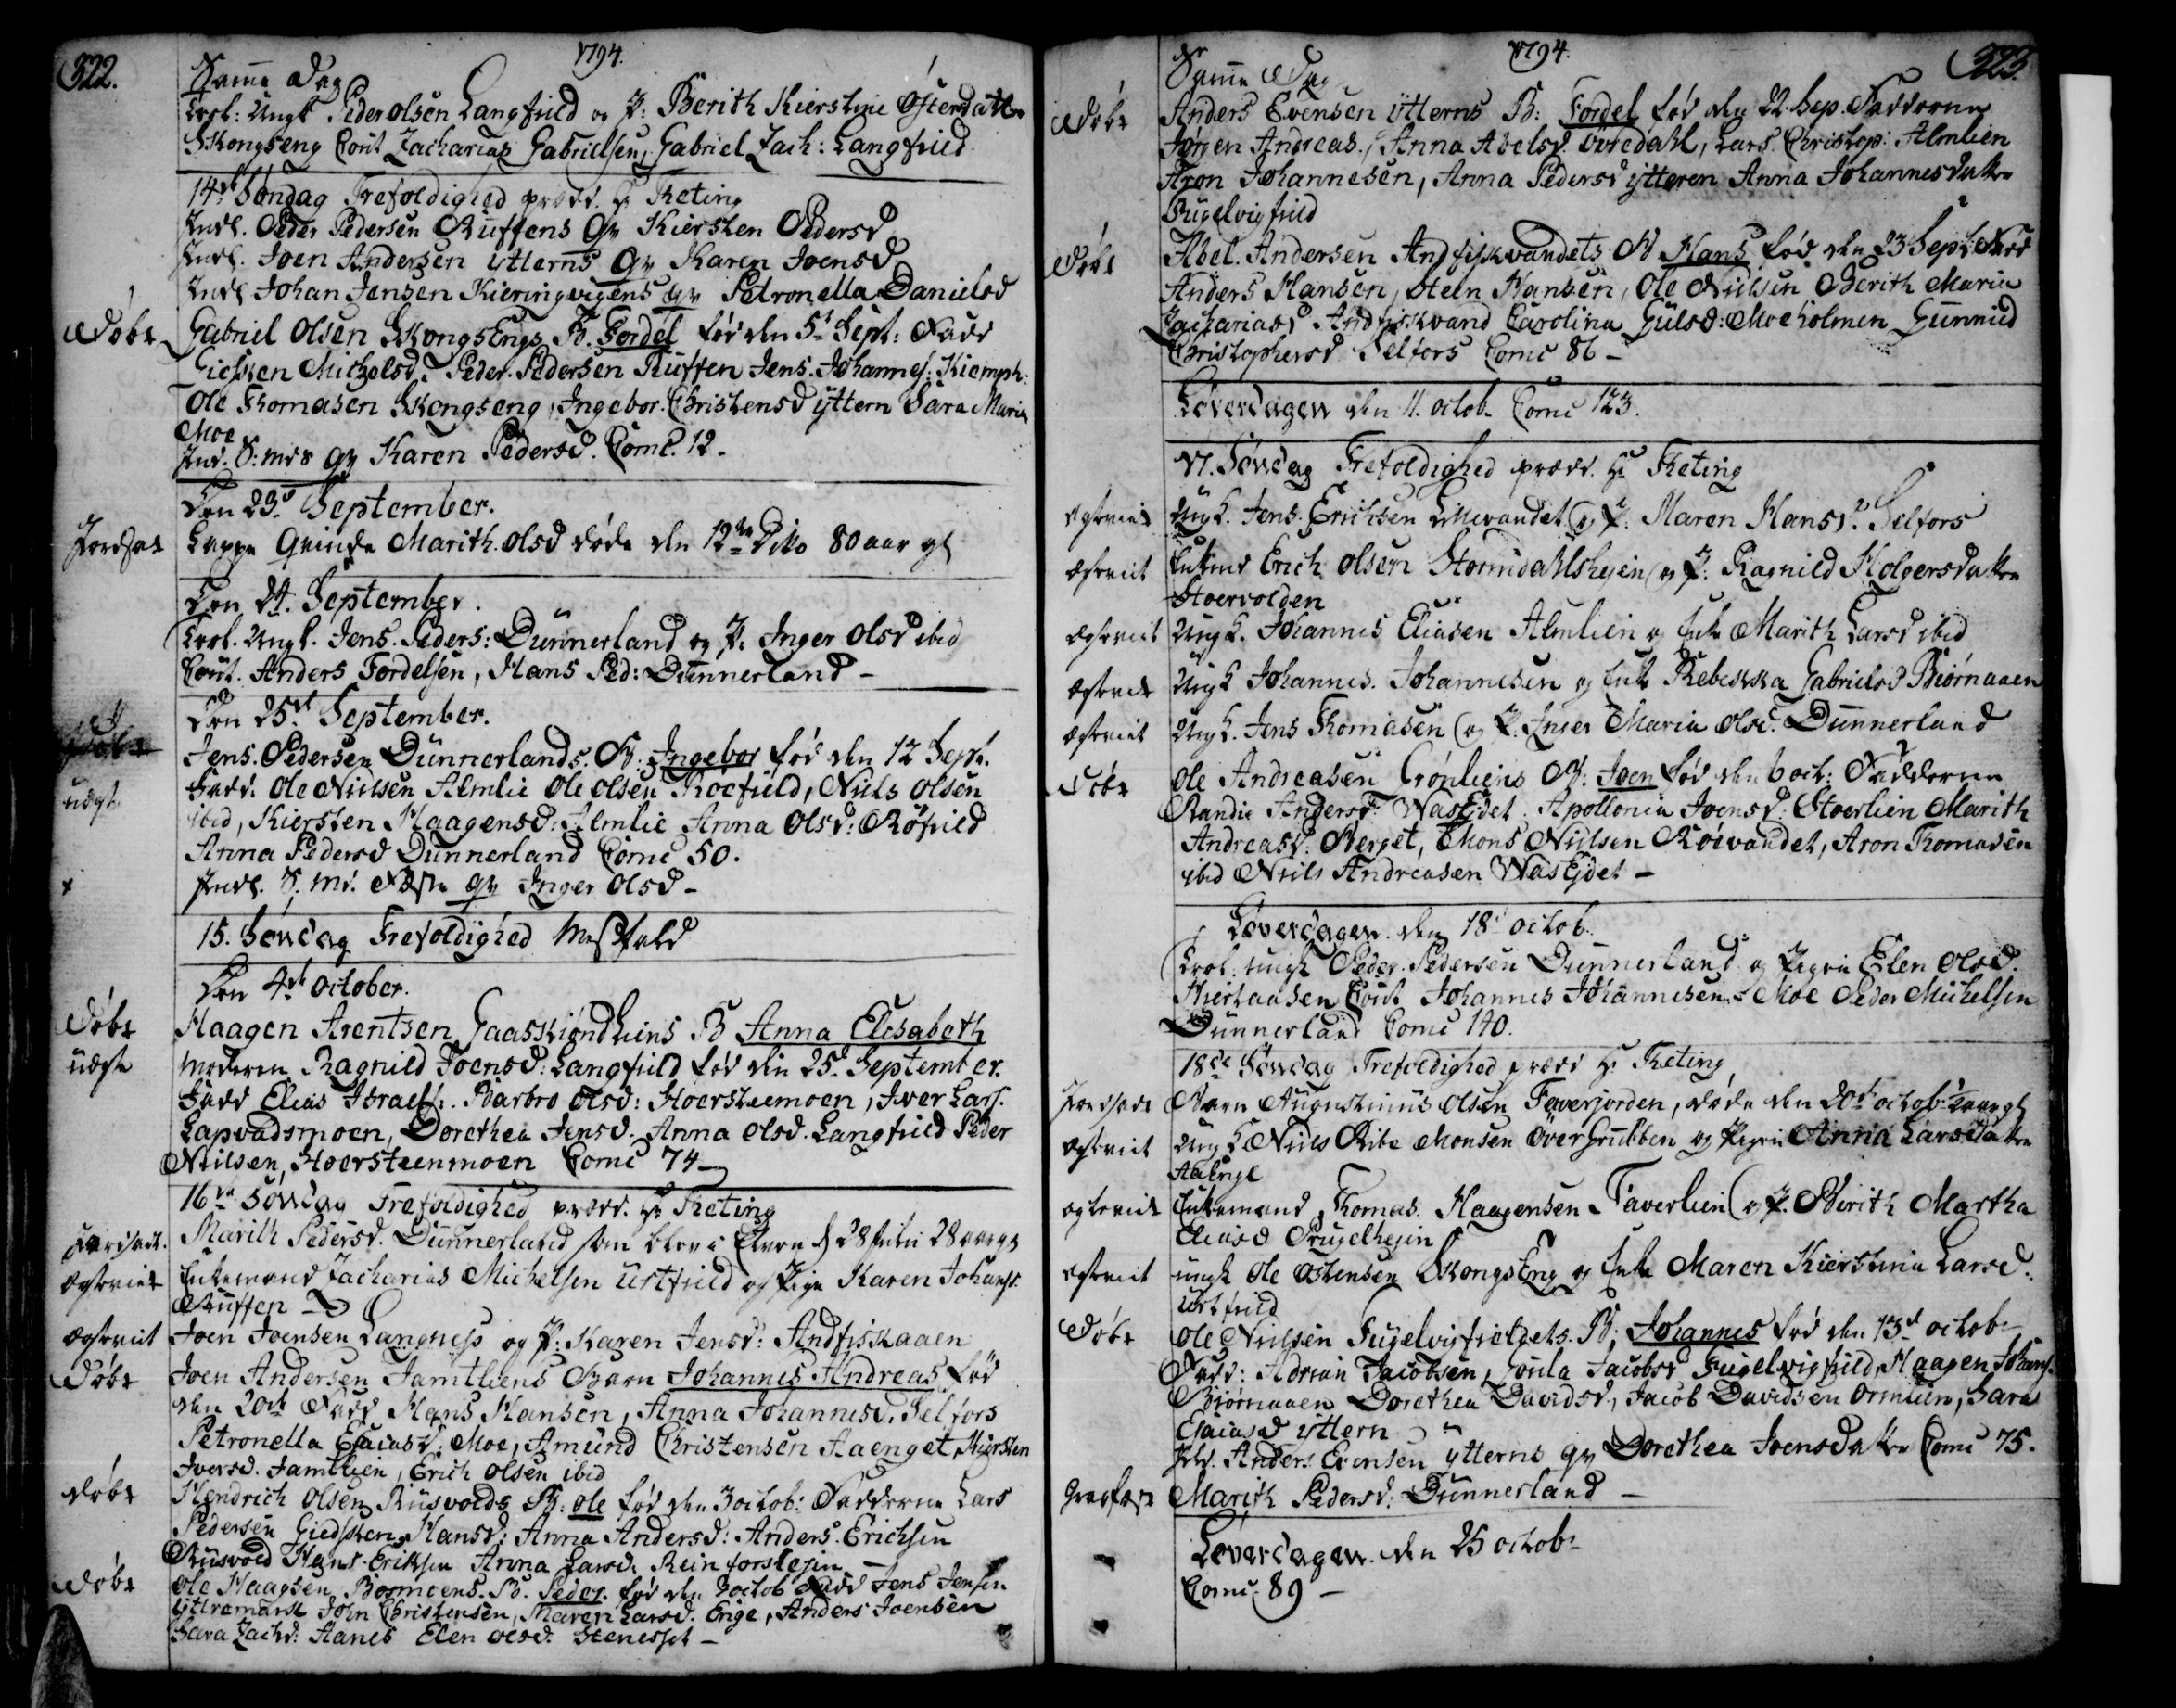 322.
1794.
Samme Dag
Trol: Ungk Peder Olsen Langfield og P: Berith Kierstine Ostensdatter
Skongseng Cout Zacharias Gabrielsen, Gabriel Zach: Langfield
14de Søndag Trefoldighed præd. Hr Keting
Indl. Peder Pedersen Ruffens Qv Kiersten Pedersd
Indl. Joen Andersen ytterns Qv Karen Joensd
Indl Johan Jensen Kieringvigens Qv Petronella Danielsd
Døbt
Gabriel Olsen SkongsEngs B. Tordel fød den 5t Sept: Fadd
Giertken Michelsd: Peder Pedersen Ruffen Jens Johannes: Kiemph:
Ole Thomasen Skongseng, Ingebor Christensd yttern Sara Maria
Moe
Ind. S: mds Qv Karen Pedersd. Comc. 12.
Den 23d September.
Jordfæt
Lappe Qvinde Marith Olsd døde den 12te Dito 80 aar gl
Den 24. September.
Trol. Ungk. Jens Peders: Dunnerland og P. Inger Olsd ibid
Cout. Anders Tordelsen, Hans Ped: Dunnerland -
Den 25d September.
Døbt
Jens Pedersen Dunnerlands B: Ingebor fød den 12 Sept.
udgt
Fadd. Ole Nielsen Almlie Ole Olsen Roefield, Niels Olsen
ibid, Kiersten Haagensd: Almlie Anna Olsd: Røfield
Anna Pedersd Dunnerland Comc 50.
x
Indl. S. Md. Næste Qv Inger Olsd -
15. Søndag Trefoldighed Messefald
Den 4de October.
Døbt
Haagen Arentsen Gaaskiøndliens B Anna Elisabeth
udgte
Moderen Ragnild Joensd: Langfield fød den 25d September.
Fadd Elias Israels: Barbro Olsd: Stoersteenmoen, Iver Lars.
Lapvadsmoen, Dorethea Jensd. Anna Olsd. Langfield Peder
Nielsen, Stoersteenmoen Comc 74 -
16de Søndag Trefoldighed præd. Hr Keting
Jordfæt.
Marith Pedersd. Dunnerland som blev i Elven d 28 Julii 28 aar gl
Egteviet
Enkemand Zacharias Michelsen Urtfield og Pige Karen Johansd:
Ruffen
Egteviet
Joen Joensen Langness og P: Karen Jensd: Andfiskaaen
Døbt
Joen Andersen Jamtliens Barn Johannes Andreas fød
den 2 Oct Fadd Hans Hansen, Anna Johannesd. Selfors
Petronella Esaiasd: Moe, Amund Christensen Aaenget, Kiersten
Iversd. Jamtlien, Erich Olsen ibid
Døbt
Hendrich Olsen Rusvolds B: Ole fød den 3 Octob: Fadderne Lars
Pedersen Giedsken Hansd: Anna Andersd: Anders Erichsen
Rusvold Hans Eriksen Anna Larsd. Reinforshejen -
Døbt
Ole Haagsen Bosmoens B. Peder fød den 3 Octob Fadd Jens Jensen
yttremarsk John Christensen, Maren Larsd. Enge, Anders Joensen
Sara Zachd: Aanes Elen Olsd. Stenesset -
1794.
323.
Samme Dag
Døbt
Anders Evensen ytterns B: Tordel fød den 22. Sep. Fadderne
Jørgen Andreas., Anna Abelsd. Ovredahl, Lars Christop: Almlien
Aron Johannesen, Anna Pedersd ytteren Anna Johannesdatter
Fugelvigfield
Døbt
Abel. Andersen Andfiskvandets B Hans fød den 23 Sept: Fadd
Anders Hansen, Steen Hansen, Ole Nielsen Berith Maria
Zachariasd Andfiskvand Carolina Gulsd: Moeholmen Gunnild
Christophersd Selfors Comc 86 -
Løverdagen den 11. Octob. Comc 123.
17. Søndag Trefoldighed præd. Hr Keting
Egteviet
Ungk. Jens Erichsen Lillevandet og P. Maren Hansd. Selfors
Egteviet
Enkmd Erich Olsen Stormdahlshejen og P. Ragnild Holgersdatter
Stoervolden
Egteviet
Ungk. Johannes Eliasen Almlien og Enke Marith Larsd ibid
Egteviet
Ungk Johannes Johannesen og Enke Rebekka Gabrielsd Biørnaaen
Egteviet
Ungk. Jens Thomasen og P. Inger Maria Olsd. Dunnerland
Døbt
Ole Andreasen Grønliens B: Joen fød den 6 Oct: Fadderne
Randie Andersd WasEjdet Apollonia Joensd: Stoerlien Marith
Andreasd Berget, Mons Nielsen Røevandet, Aron Thomasen
ibid Niels Andreasen WasEjdet -
Løverdagen den 18d Octob.
Trol. ungk Peder Pedersen Dunnerland og Pigen Elen Olsd.
Hierhaasen Cout Johannes Johannesen - Moe Peder Michelsen
Dunnerland Comc 140.
18de Søndag Trefoldighed præd Hr Keting
Jordfæt
Barn Augustinus Olsen Tøverjorden, døde den 20d Octob: aar gl
Egteviet
Ungk Niels Ribe Monsen Øver Grubben og Pigen Anna Larsdatter
Egteviet
Enkemand Thomas Haagensen Taverlien og P. Berith Martha
Eliasd Prugelhejen
Egteviet
ungk Ole Ostensen SkongsEng og Enke Maren Kierstina Larsd.
Urtfield
Døbt
Ole Nielsen Fugelvigfieldets B. Johannes fød den 13d Octob.
Fadd: Adrian Jacobsen, Goula Jacobsd Fugelvigfield, Haagen Johans.
Biørnaaen Dorethea Davidsd, Jacob Davidsen Ormlien, Sara
Esaiasd yttern
Ind. Anders Evensen ytterns Qv Dorethea Joensdatter Comc 75.
Gravfæst
Marith Pedersd: Dunnerland -
Løverdagen den 25 Octob.
Comc 89 -